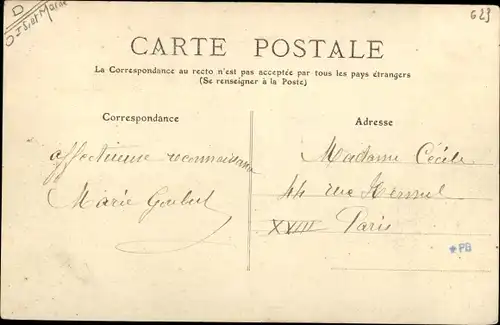 D
623
CARTE POSTALE
La Correspondance au recto n'est pas acceptée par tous les pays étrangers
(Se renseigner à la Poste)
Correspondance
Adresse
affectueuse reconnaissance
Marie
Madame Cécile
44 rue Hermel
XVIII Paris
*PB